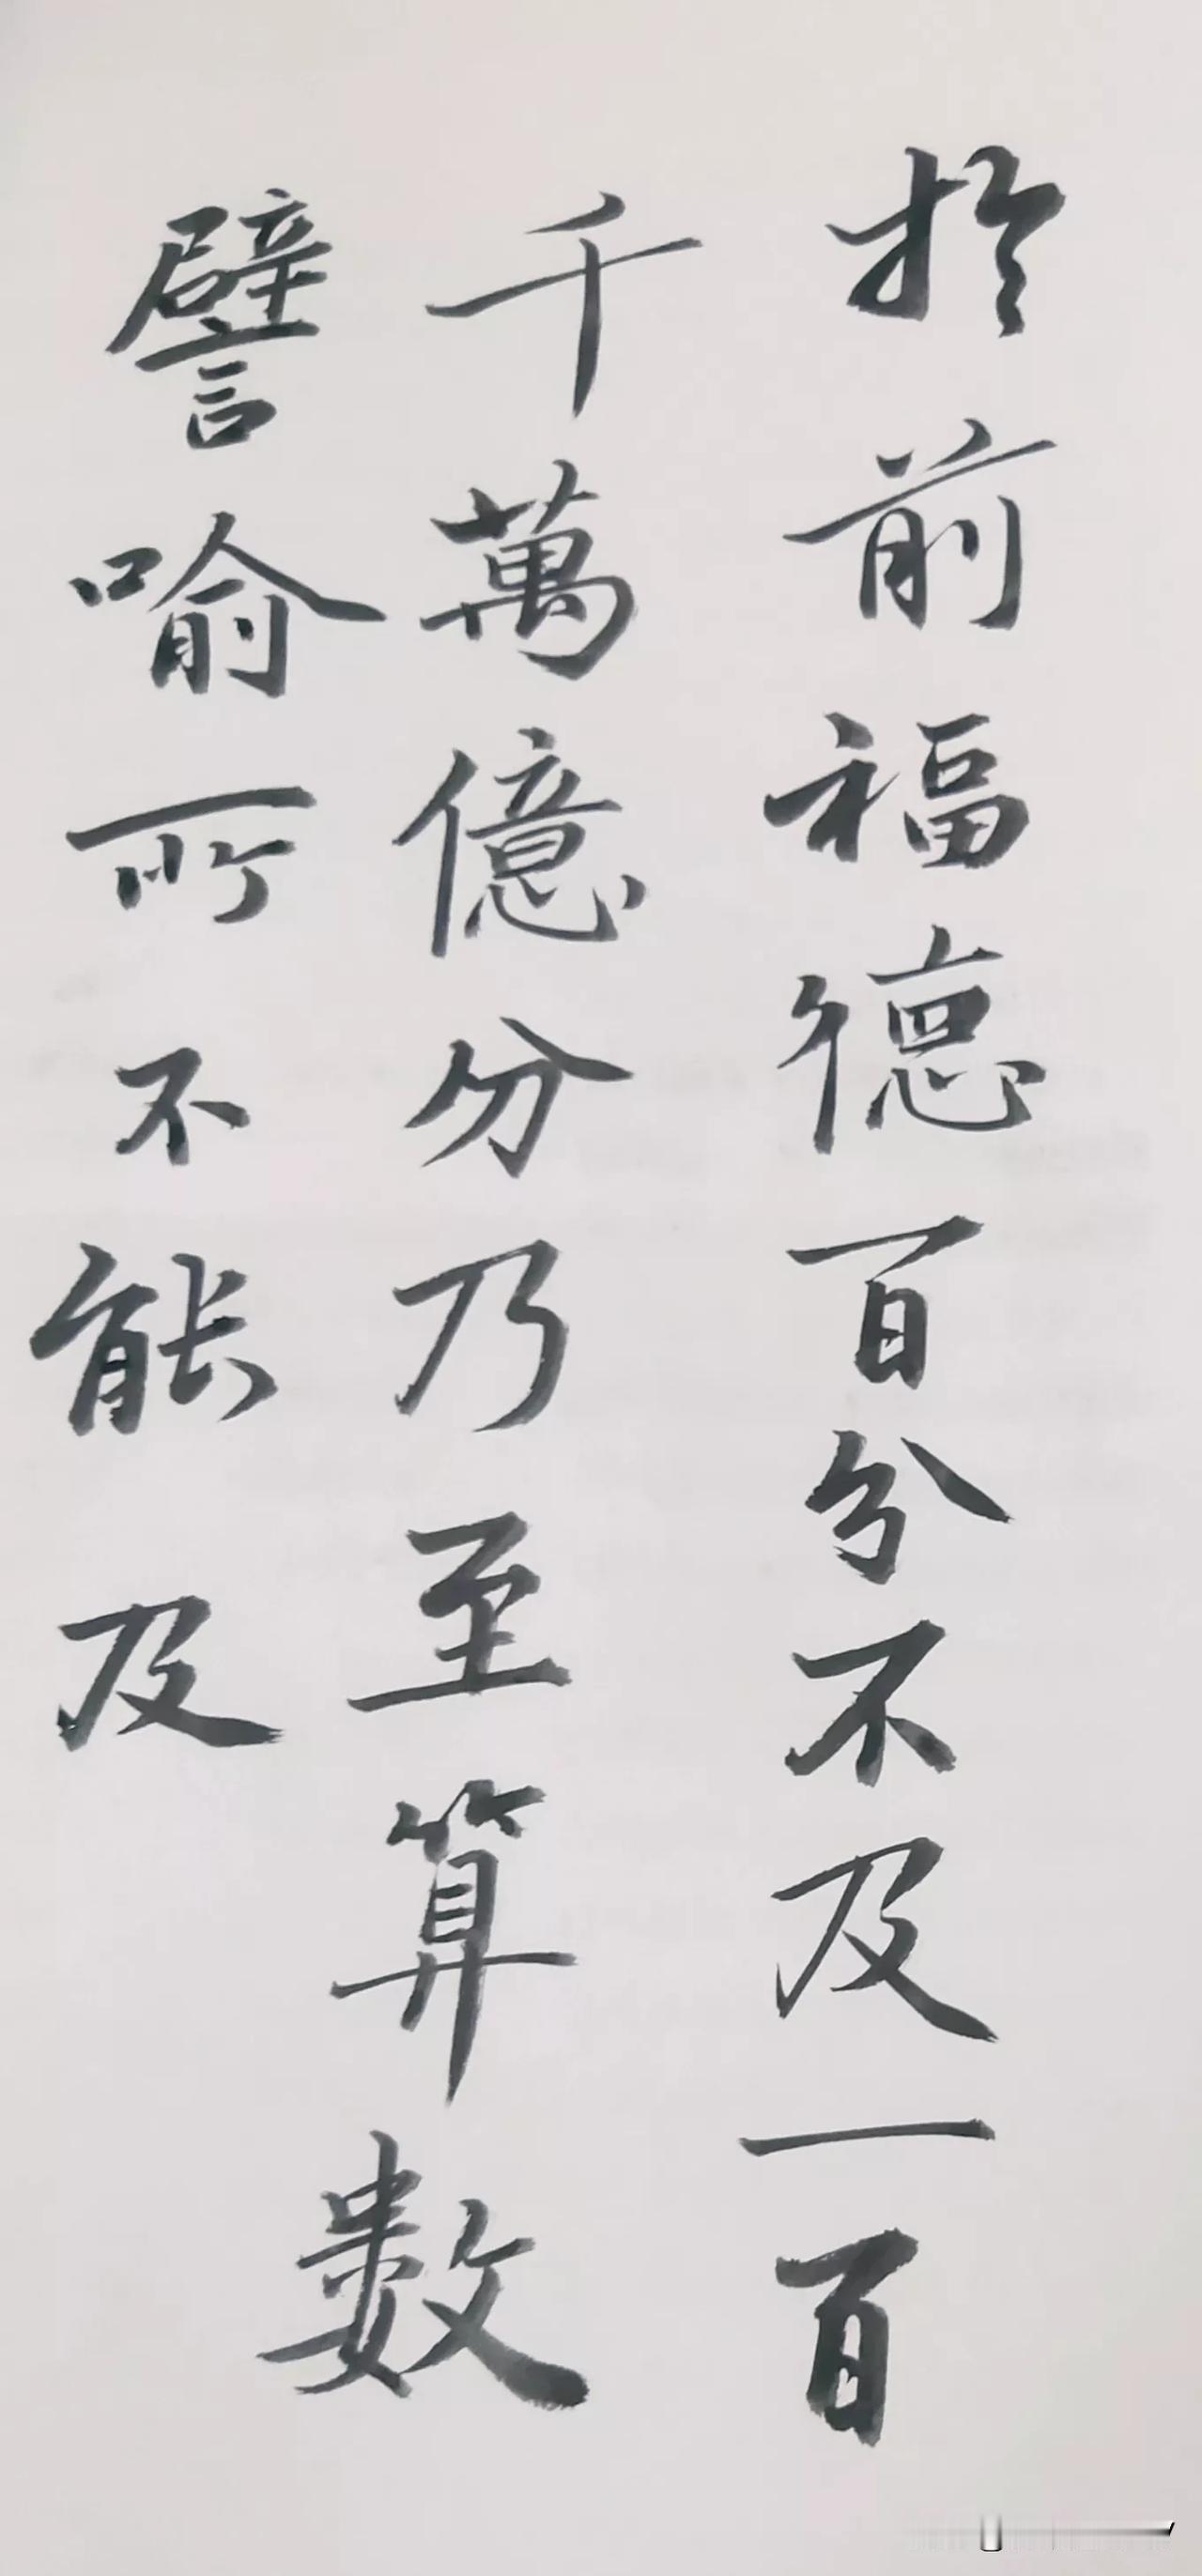 於前福德百分不及一百
千萬億分乃至算數
譬喻所不能及